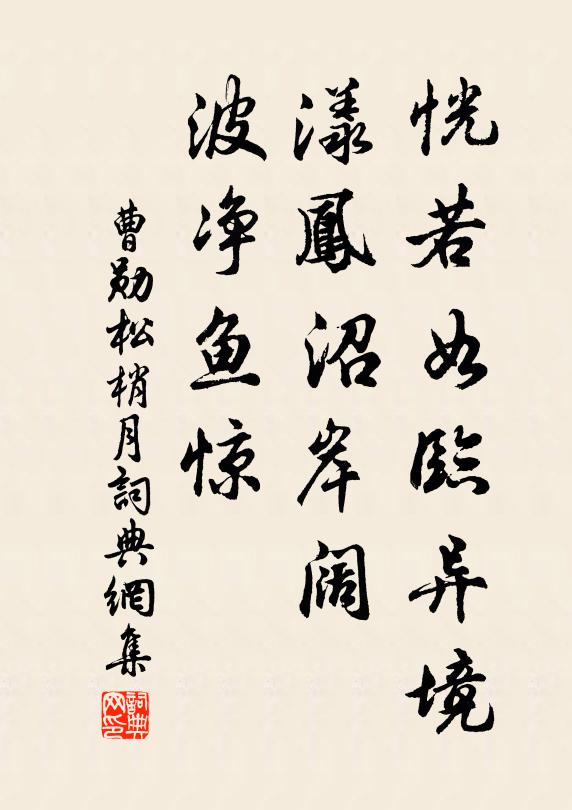 恍若如臨异境
漾鳳沼岸闊
波净鱼惊
曹勋松梢月詞典網集
詞典网印